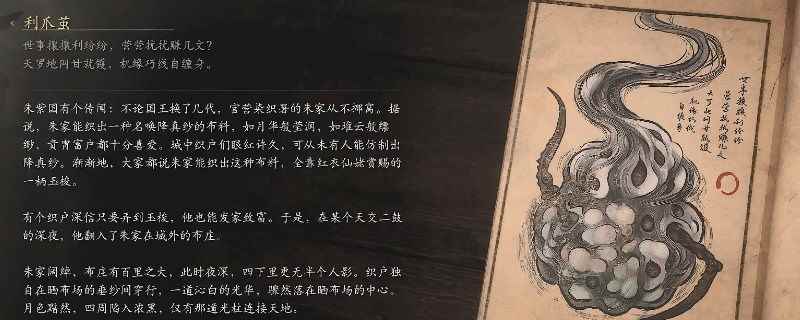 利爪茧
世事攘攘利纷纷，营营扰扰赚几文？
天罗地网甘就镬，机缘巧线自缠身。
朱紫国有个传闻：不论国王换了几代，宫营染织署的朱家从不挪窝。据
说，朱家能织出一种名唤降真纱的布料，如月华般莹润，如堆云般缥
缈，贵胄富户都十分喜爱。城中织户们眼红许久，可从未有人能仿制出
降真纱。渐渐地，大家都说朱家能织出这种布料，全靠红衣仙姥赏赐的
一柄玉梭。
有个织户深信只要弄到玉梭，他也能发家致富。于是，在某个天交二鼓
的深夜，他翻入了朱家在城外的布庄。
朱家阔绰，布庄有百里之大，此时夜深，四下里更无半个人影。织户独
自在晒布场的垂纱间穿行，一道沁白的光华，骤然落在晒布场的中心。
月色黯然，四周陷入浓黑，仅有那道光柱连接天地。
世事攘攘利纷纷
营营扰扰赚几文
天罗地网甘就镬
机缘巧线
自缠身